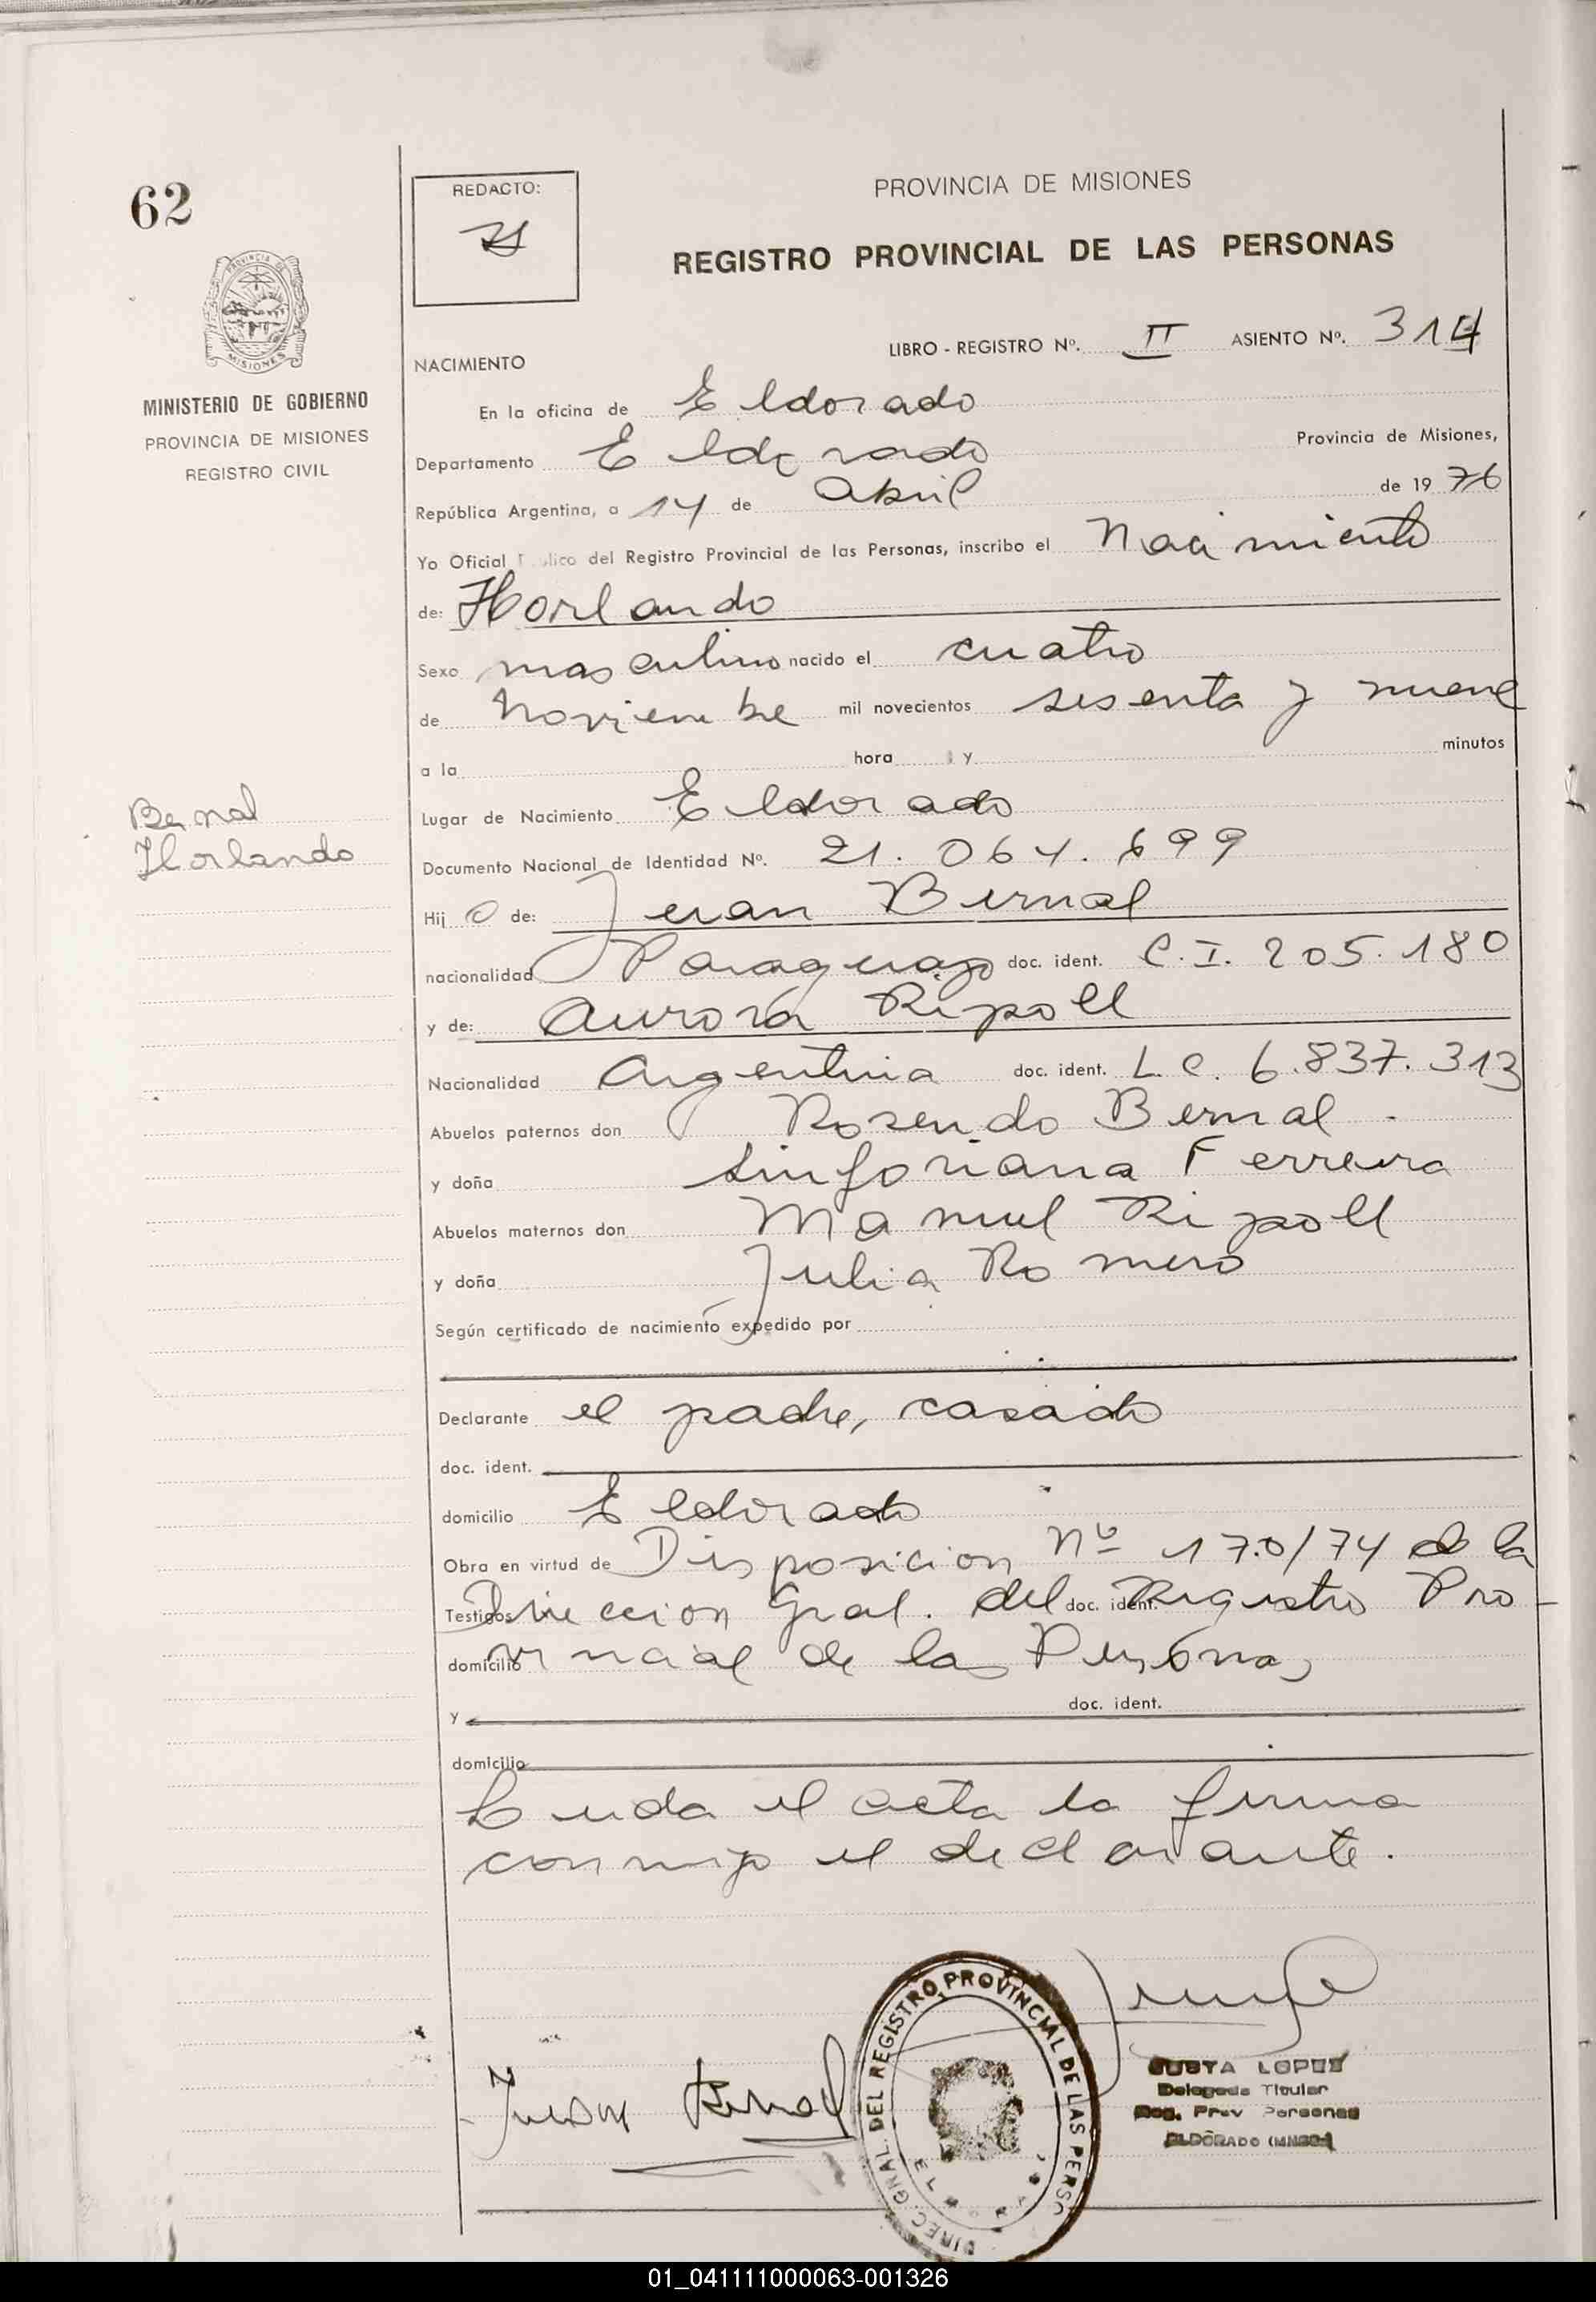 62
REDACTO:
PROVINCIA DE MISIONES
REGISTRO PROVINCIAL DE LAS PERSONAS
PROVINCIA DE
MISIONES
MINISTERIO DE GOBIERNO
PROVINCIA DE MISIONES
REGISTRO CIVIL
LIBRO - REGISTRO Nº. II ASIENTO Nº. 314
NACIMIENTO
En la oficina de Eldorado
Departamento Eldorado Provincia de Misiones,
República Argentina, a 14 de Abril de 1976
Yo Oficial Público del Registro Provincial de las Personas, inscribo el Nacimiento
de: Horlando
Sexo masculino nacido el cuatro
de Noviembre mil novecientos sesenta y nueve
a la hora y minutos
Lugar de Nacimiento Eldorado
Bernal
Horlando
Documento Nacional de Identidad Nº. 21.064.699
Hij o de: Juan Bernal
nacionalidad Paraguayo doc. ident. C.I. 205.180
y de: Aurora Ripoll
Nacionalidad Argentina doc. ident. L.C. 6.837.313
Abuelos paternos don Rosendo Bernal
y doña Sinforiana Ferreira
Abuelos maternos don Manuel Ripoll
y doña Julia Romero
Según certificado de nacimiento expedido por
Declarante el padre, casado
doc. ident.
domicilio Eldorado
Obra en virtud de Disposicion Nº 170/74 de la
Testigos Direccion Gral. del doc. ident. Registro Pro-
domicilio vincial de las Personas
y doc. ident.
domicilio
Leida el acta la firma
conmigo el declarante.
Juan Bernal
DIREC. GRAL. DEL REGISTRO PROVINCIAL DE LAS PERSO
ELDORADO
JUSTA LOPEZ
Delegada Titular
Reg. Prov Personas
ELDORADO (MNES)
01_041111000063-001326